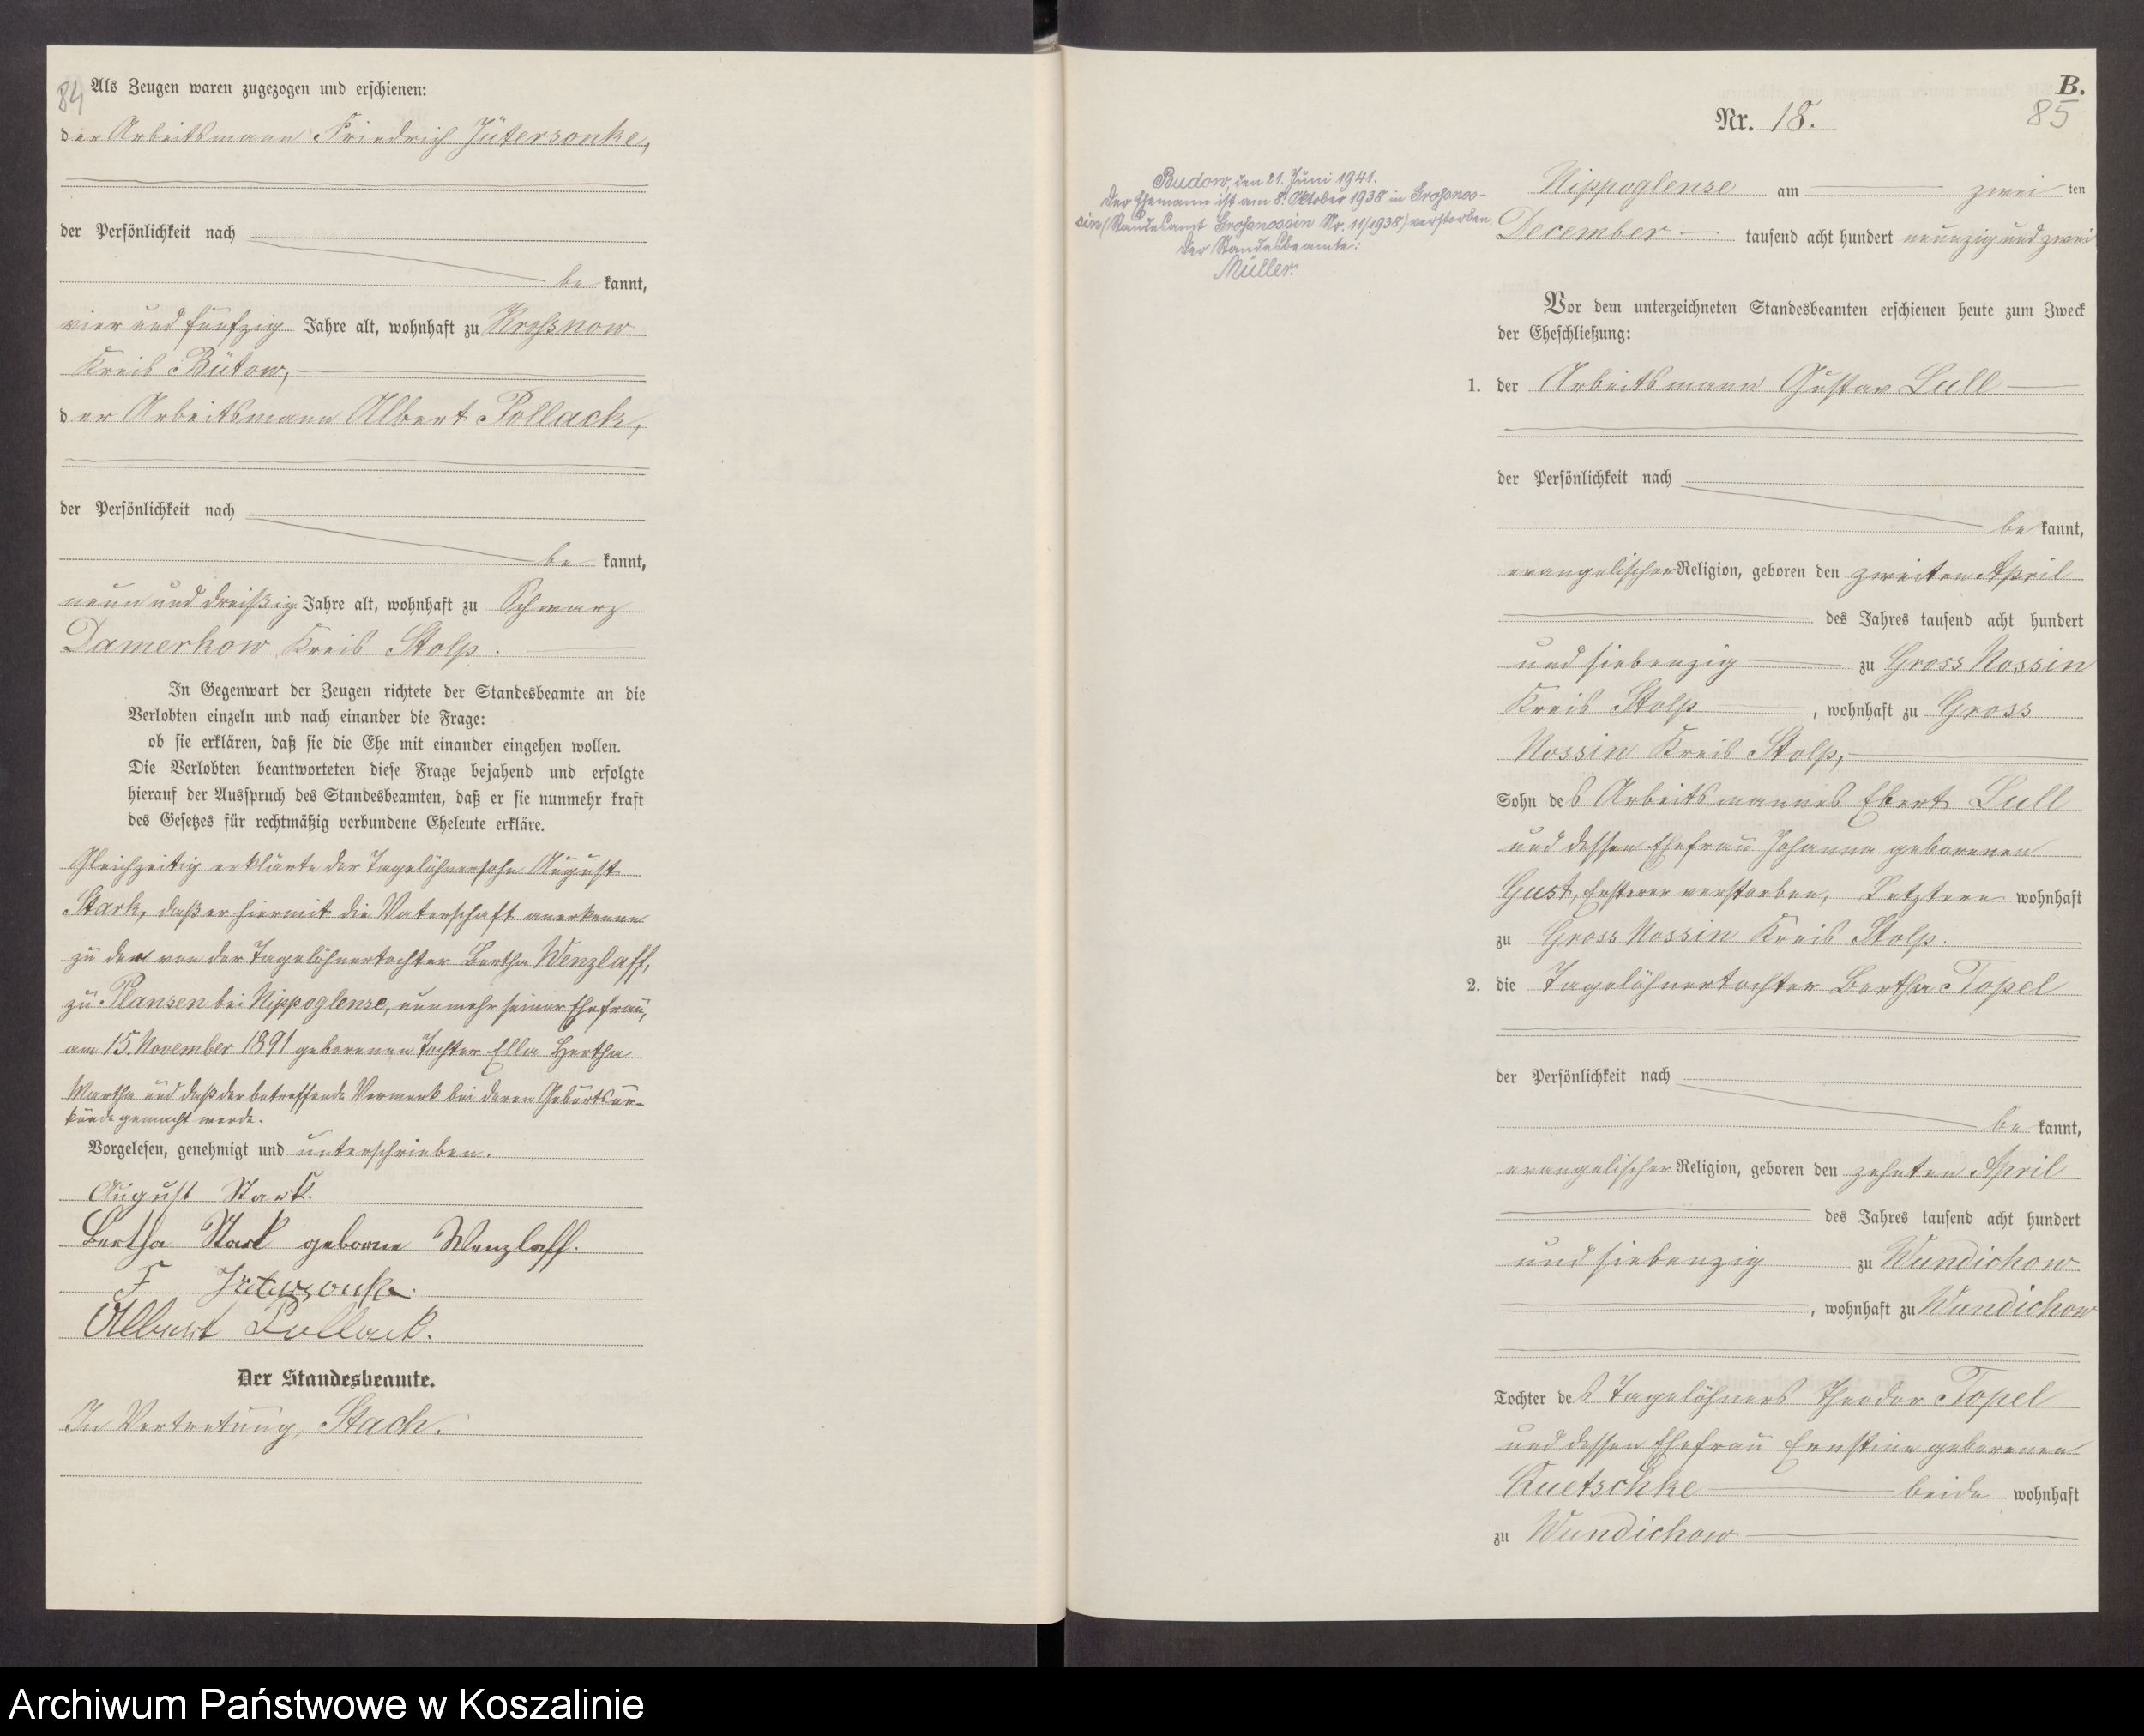 84
Als Zeugen waren zugezogen und erschienen:
der Arbeitsmann Friedrich Jütersonke,
der Persönlichkeit nach
be kannt,
vier und fünfzig Jahre alt, wohnhaft zu
Kreis Bütow,
der Arbeitsmann Albert Pollack,
der Persönlichkeit nach
be kannt,
neun und dreißig Jahre alt, wohnhaft zu Schwarz
Damerkow Kreis Stolp.
In Gegenwart der Zeugen richtete der Standesbeamte an die
Verlobten einzeln und nach einander die Frage:
ob sie erklären, daß sie die Ehe mit einander eingehen wollen.
Die Verlobten beantworteten diese Frage bejahend und erfolgte
hierauf der Ausspruch des Standesbeamten, daß er sie nunmehr kraft
des Gesetzes für rechtmäßig verbundene Eheleute erkläre.
Gleichzeitig erklärte der Tagelöhnersohn August
Stark, daß er hiermit die Vaterschaft anerkenne
zu der von der Tagelöhnertochter Bertha Wenzlaff,
zu Plansen bei Nippoglense, nunmehr seiner Ehefrau,
am 15. November 1891 geborenen Tochter Ella Hertha
Martha und daß der betreffende Vermerk bei deren Geburtsur-
kunde gemacht werde.
Vorgelesen, genehmigt und unterschrieben.
August Stark.
Bertha Stark geborne Wenzlaff.
F Jütersonke.
Albert Pollack.
Der Standesbeamte.
In Vertretung, Stach.
B.
85
Nr. 18.
Budow, den 21. Juni 1941.
Der Ehemann ist am 8. Oktober 1938 in Großnos-
sin (Standesamt Großnossin Nr. 11/1938) verstorben.
Der Standesbeamte:
Müller.
Nippoglense am zwei ten
December tausend acht hundert neunzig und zwei
Vor dem unterzeichneten Standesbeamten erschienen heute zum Zweck
der Eheschließung:
1. der Arbeitsmann Gustav Lull
der Persönlichkeit nach
be kannt,
evangelischer Religion, geboren den zweiten April
des Jahres tausend acht hundert
und siebenzig zu Gross Nossin
Kreis Stolp, wohnhaft zu Gross
Nossin Kreis Stolp,
Sohn des Arbeitsmannes Ebert Lull
und dessen Ehefrau Johanna geborenen
Gust, Ersterer verstorben, Letztere wohnhaft
zu Gross Nossin Kreis Stolp.
2. die Tagelöhnertochter Bertha Topel
der Persönlichkeit nach
be kannt,
evangelischer Religion, geboren den zehnten April
des Jahres tausend acht hundert
und siebenzig zu Wundichow
, wohnhaft zu Wundichow
Tochter des Tagelöhners Theodor Topel
und dessen Ehefrau Ernstine geborenen
Kuetschke beide wohnhaft
zu Wundichow
Archiwum Państwowe w Koszalinie